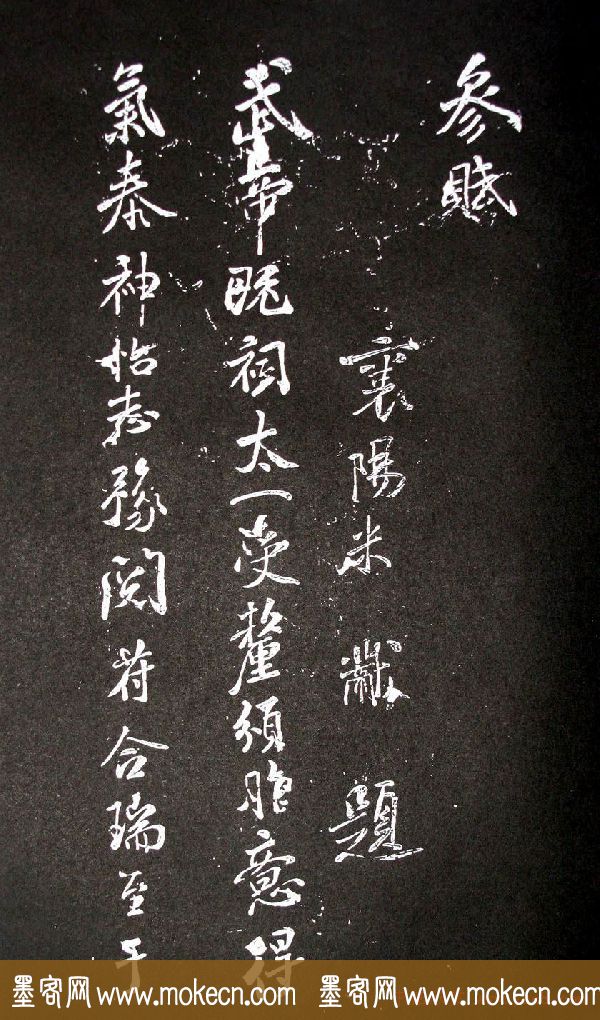 參賦
襄陽米黻題
武帝既祠太一受釐頒胙意得
氣泰神怡豫閱符合瑞至于
墨客网 www.mokecn.com 墨客网 www.mokecn.com